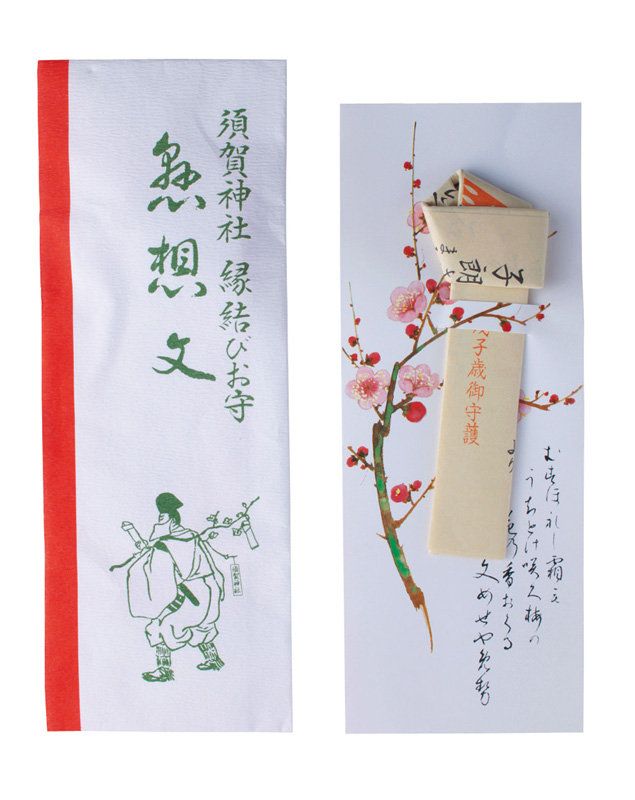 須賀神社 縁結びお守
懸想文
須賀神社
子朗
子歳御守護
むすほれし霜
うちとけ咲久梅の
香おくる
文めせや